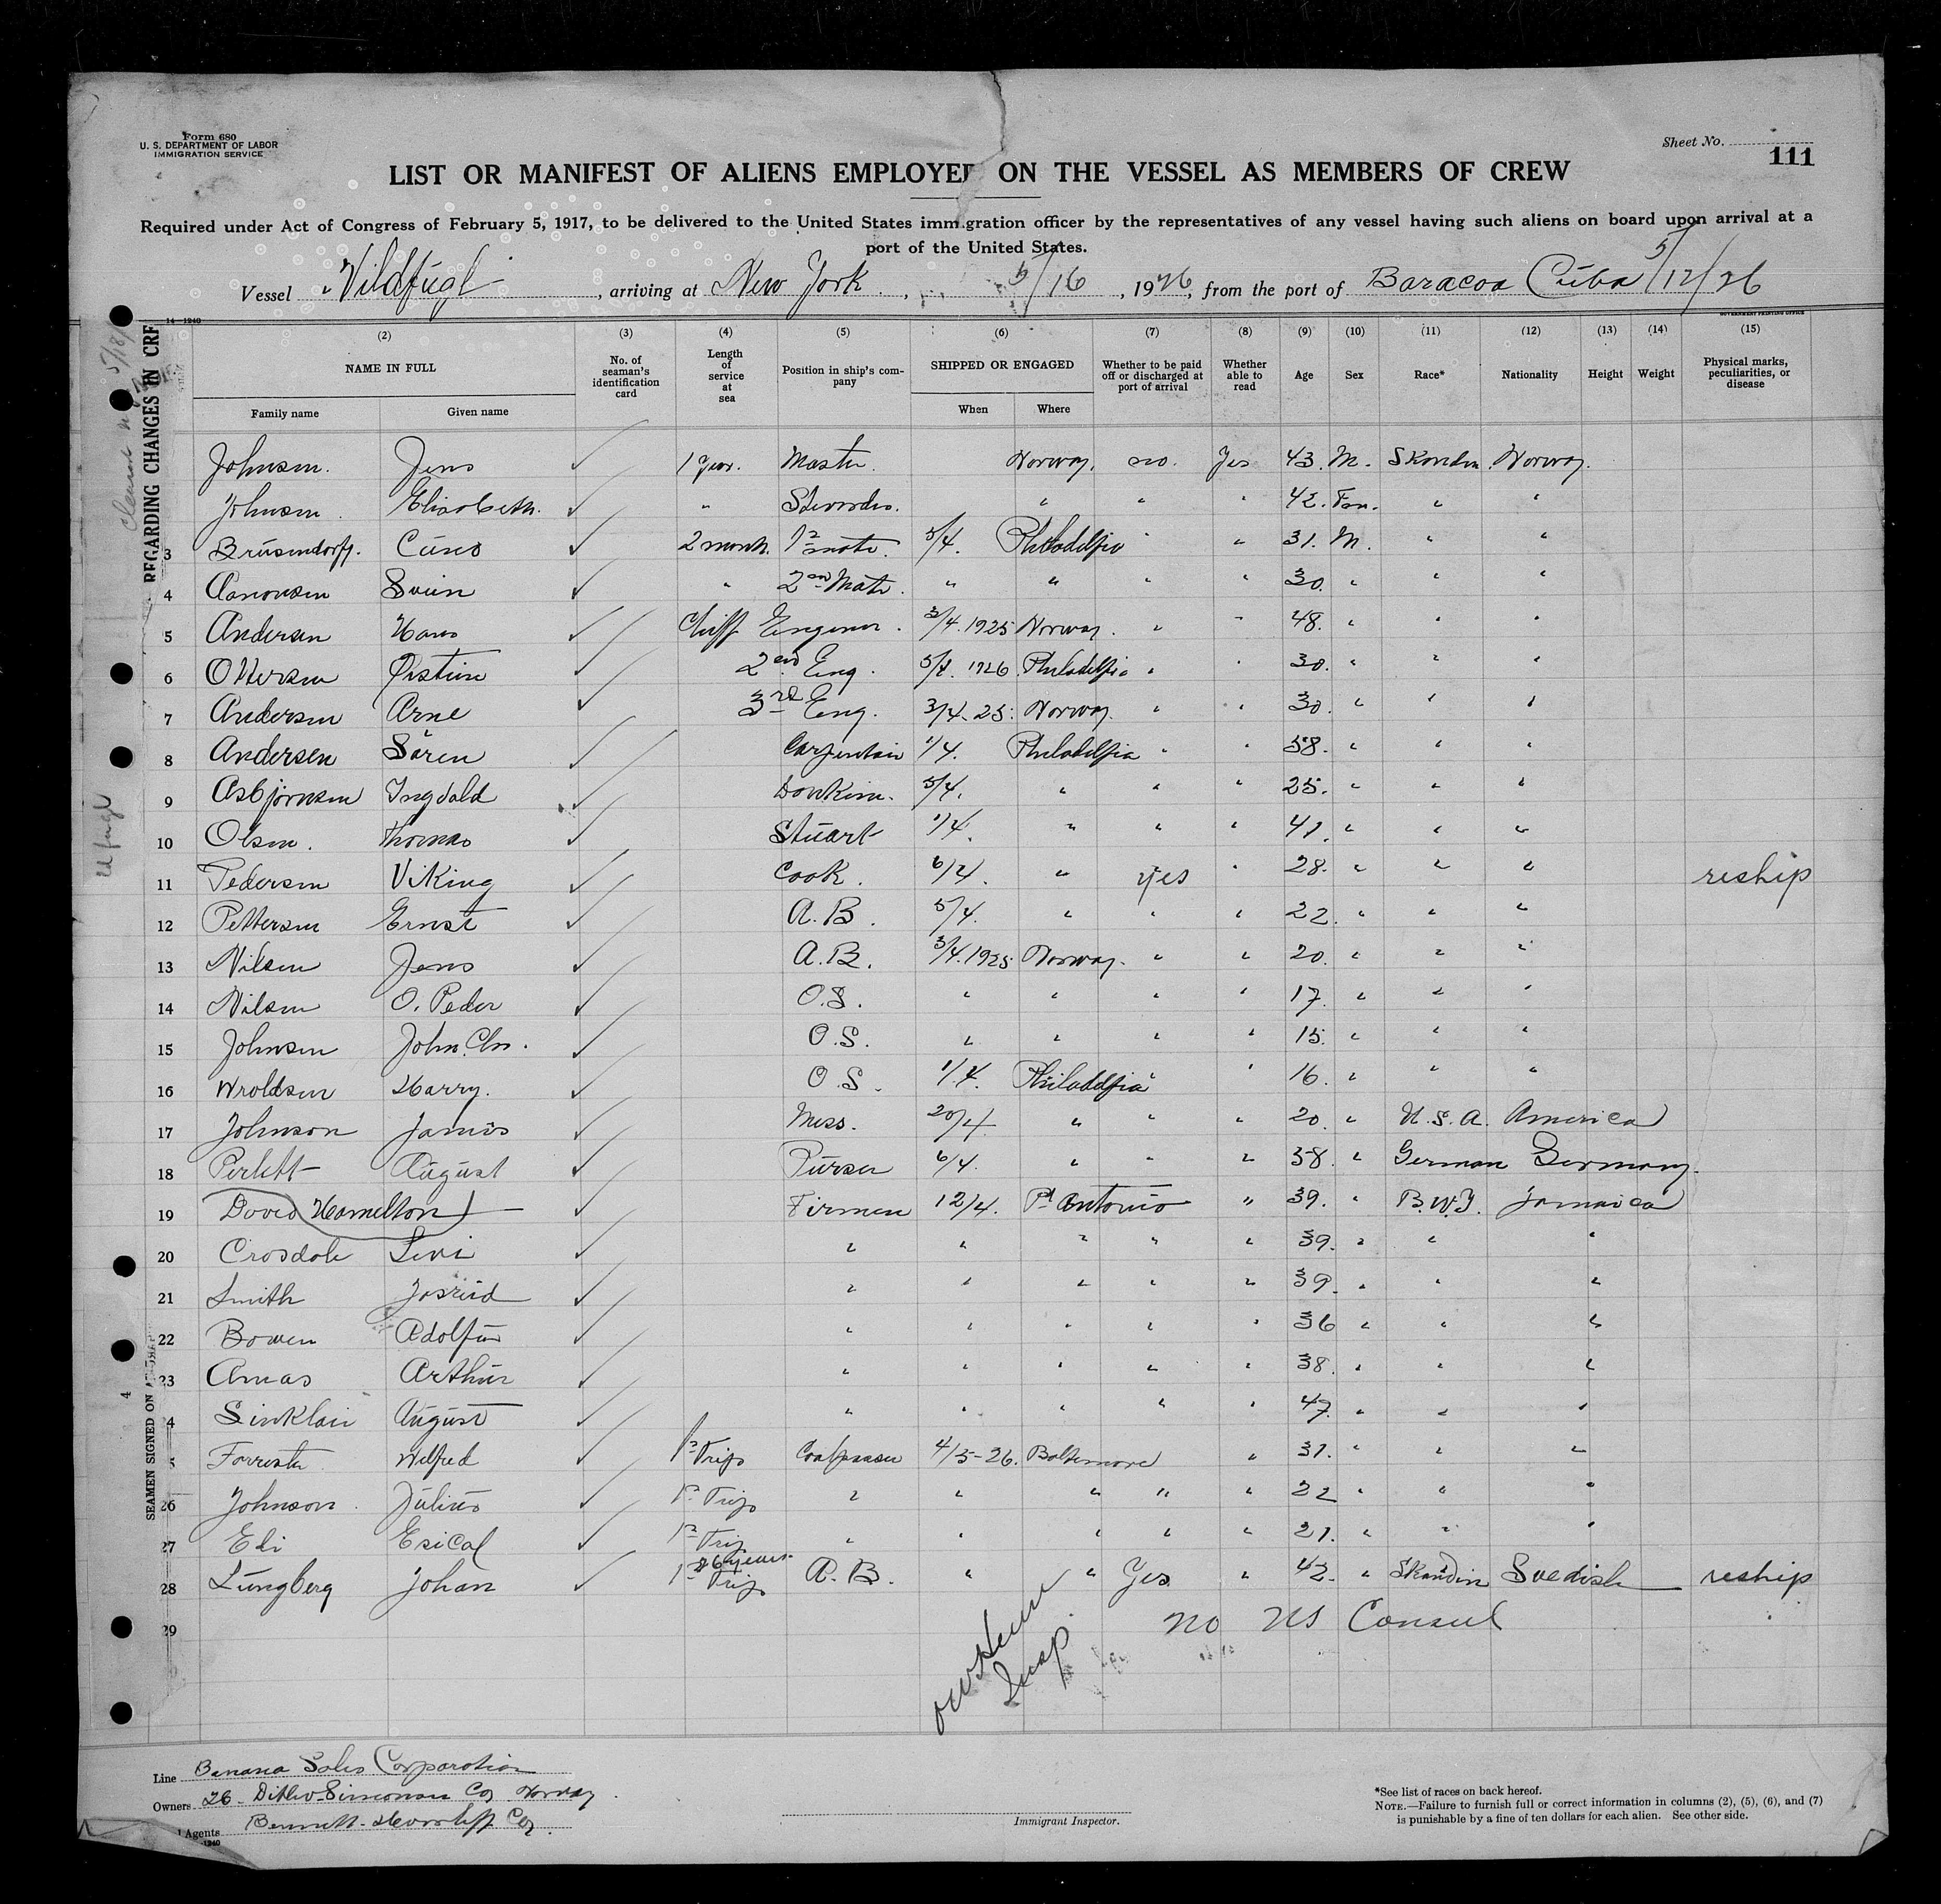 Form 680
U. S. DEPARTMENT OF LABOR
IMMIGRATION SERVICE
Sheet No.
111
LIST OR MANIFEST OF ALIENS EMPLOYED ON THE VESSEL AS MEMBERS OF CREW
Required under Act of Congress of February 5, 1917, to be delivered to the United States immigration officer by the representatives of any vessel having such aliens on board upon arrival at a
port of the United States.
Vessel "Vildfugl", arriving at New York, 5/16, 1926, from the port of Baracoa Cuba 5/12/26
14-1240
GOVERNMENT PRINTING OFFICE
(2) (3) (4) (5) (6) (7) (8) (9) (10) (11) (12) (13) (14) (15)
NAME IN FULL
Family name Given name
No. of seaman's identification card
Length of service at sea
Position in ship's company
SHIPPED OR ENGAGED
When Where
Whether to be paid off or discharged at port of arrival
Whether able to read
Age
Sex
Race*
Nationality
Height
Weight
Physical marks, peculiarities, or disease
Johnsen. Jens ✓ 1 year. Master. Norway. no. Yes 43. M. Skandin. Norway.
Johnsen. Elisabeth. ✓ " " " " 42. Fem. " "
3 Brusendorff. Cuno ✓ 2 month. 1st mate. 5/4. Philadelfia " " 31. M. " "
4 Aanonsen Svein ✓ " 2nd Mate. " " " " 30. " " "
5 Andersen Hans ✓ Chiff Enginer. 3/4. 1925 Norway. " " 48. " " "
6 Ottersen Östein ✓ 2nd Eng. 5/4. 1926. Philadelfia " " 30. " " "
7 Andersen Arne ✓ 3rd Eng. 3/4-25. Norway. " " 30. " " "
8 Andersen Sören ✓ 1/4. Philadelfia " " 58. " " "
9 Asbjörnsen Ingvald ✓ Donkim. 5/4. " " " 25. " " "
10 Olsen. Thomas ✓ Stuart 1/4. " " " 41. " " "
11 Pedersen Viking ✓ Cook. 6/4. " yes " 28. " " " reship
12 Pettersen Ernst ✓ A.B. 5/4. " " " 22. " " "
13 Nilsen Jens ✓ A.B. 3/4. 1925 Norway. " " 20. " " "
14 Nilsen O. Peder ✓ O.S. " " " " 17. " " "
15 Johnsen John. Chr. ✓ O.S. " " " " 15. " " "
16 Wroldsen Harry. ✓ O.S. 1/4. Philadelfia " " 16. " " "
17 Johnson James ✓ Mess. 20/4. " " " 20. " U.S.A. America
18 August ✓ Purser 6/4. " " " 38. " German Germany.
19 David Hamelton ✓ Firmen 12/4. Pt Antonio " 39. " B.W.I. Jamaica
20 Crosdale Levi ✓ " " " " " 39. " " "
21 Smith ✓ " " " " " 39. " " "
22 Bowen Adolfus ✓ " " " " " 36 " " "
23 Amas Arthur ✓ " " " " " 38. " " "
4 Sinklair August ✓ " " " " " 47. " " "
5 Forrester Wilfred ✓ 1st Trip Coalpasser 4/5-26. Baltimore " 31. " " "
26 Johnson. Julius ✓ 1st Trip " " " " " 22 " " "
27 Eli Esical ✓ 1st Trip " " " " " 21. " " "
28 Lungberg Johan ✓ 26 years 1st Trip A.B. " " Yes " 42. " Skandin Swedish reship
29
no US Consul
Insp
REGARDING CHANGES IN CRE
SEAMEN SIGNED ON
4
5/18/
Line Banana Sales Corporation
Owners 26- Ditlev-Simonsen Co Norway.
Agents
1240
Immigrant Inspector.
*See list of races on back hereof.
NOTE.—Failure to furnish full or correct information in columns (2), (5), (6), and (7)
is punishable by a fine of ten dollars for each alien. See other side.